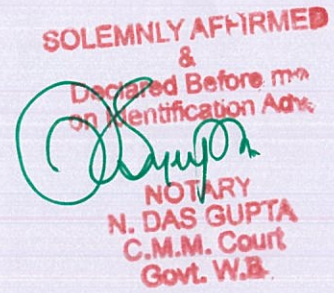 SOLEMNLY AFFIRMED
&
Declared Before me
on Identification Adv.
NOTARY
N. DAS GUPTA
C.M.M. Court
Govt. W.B.